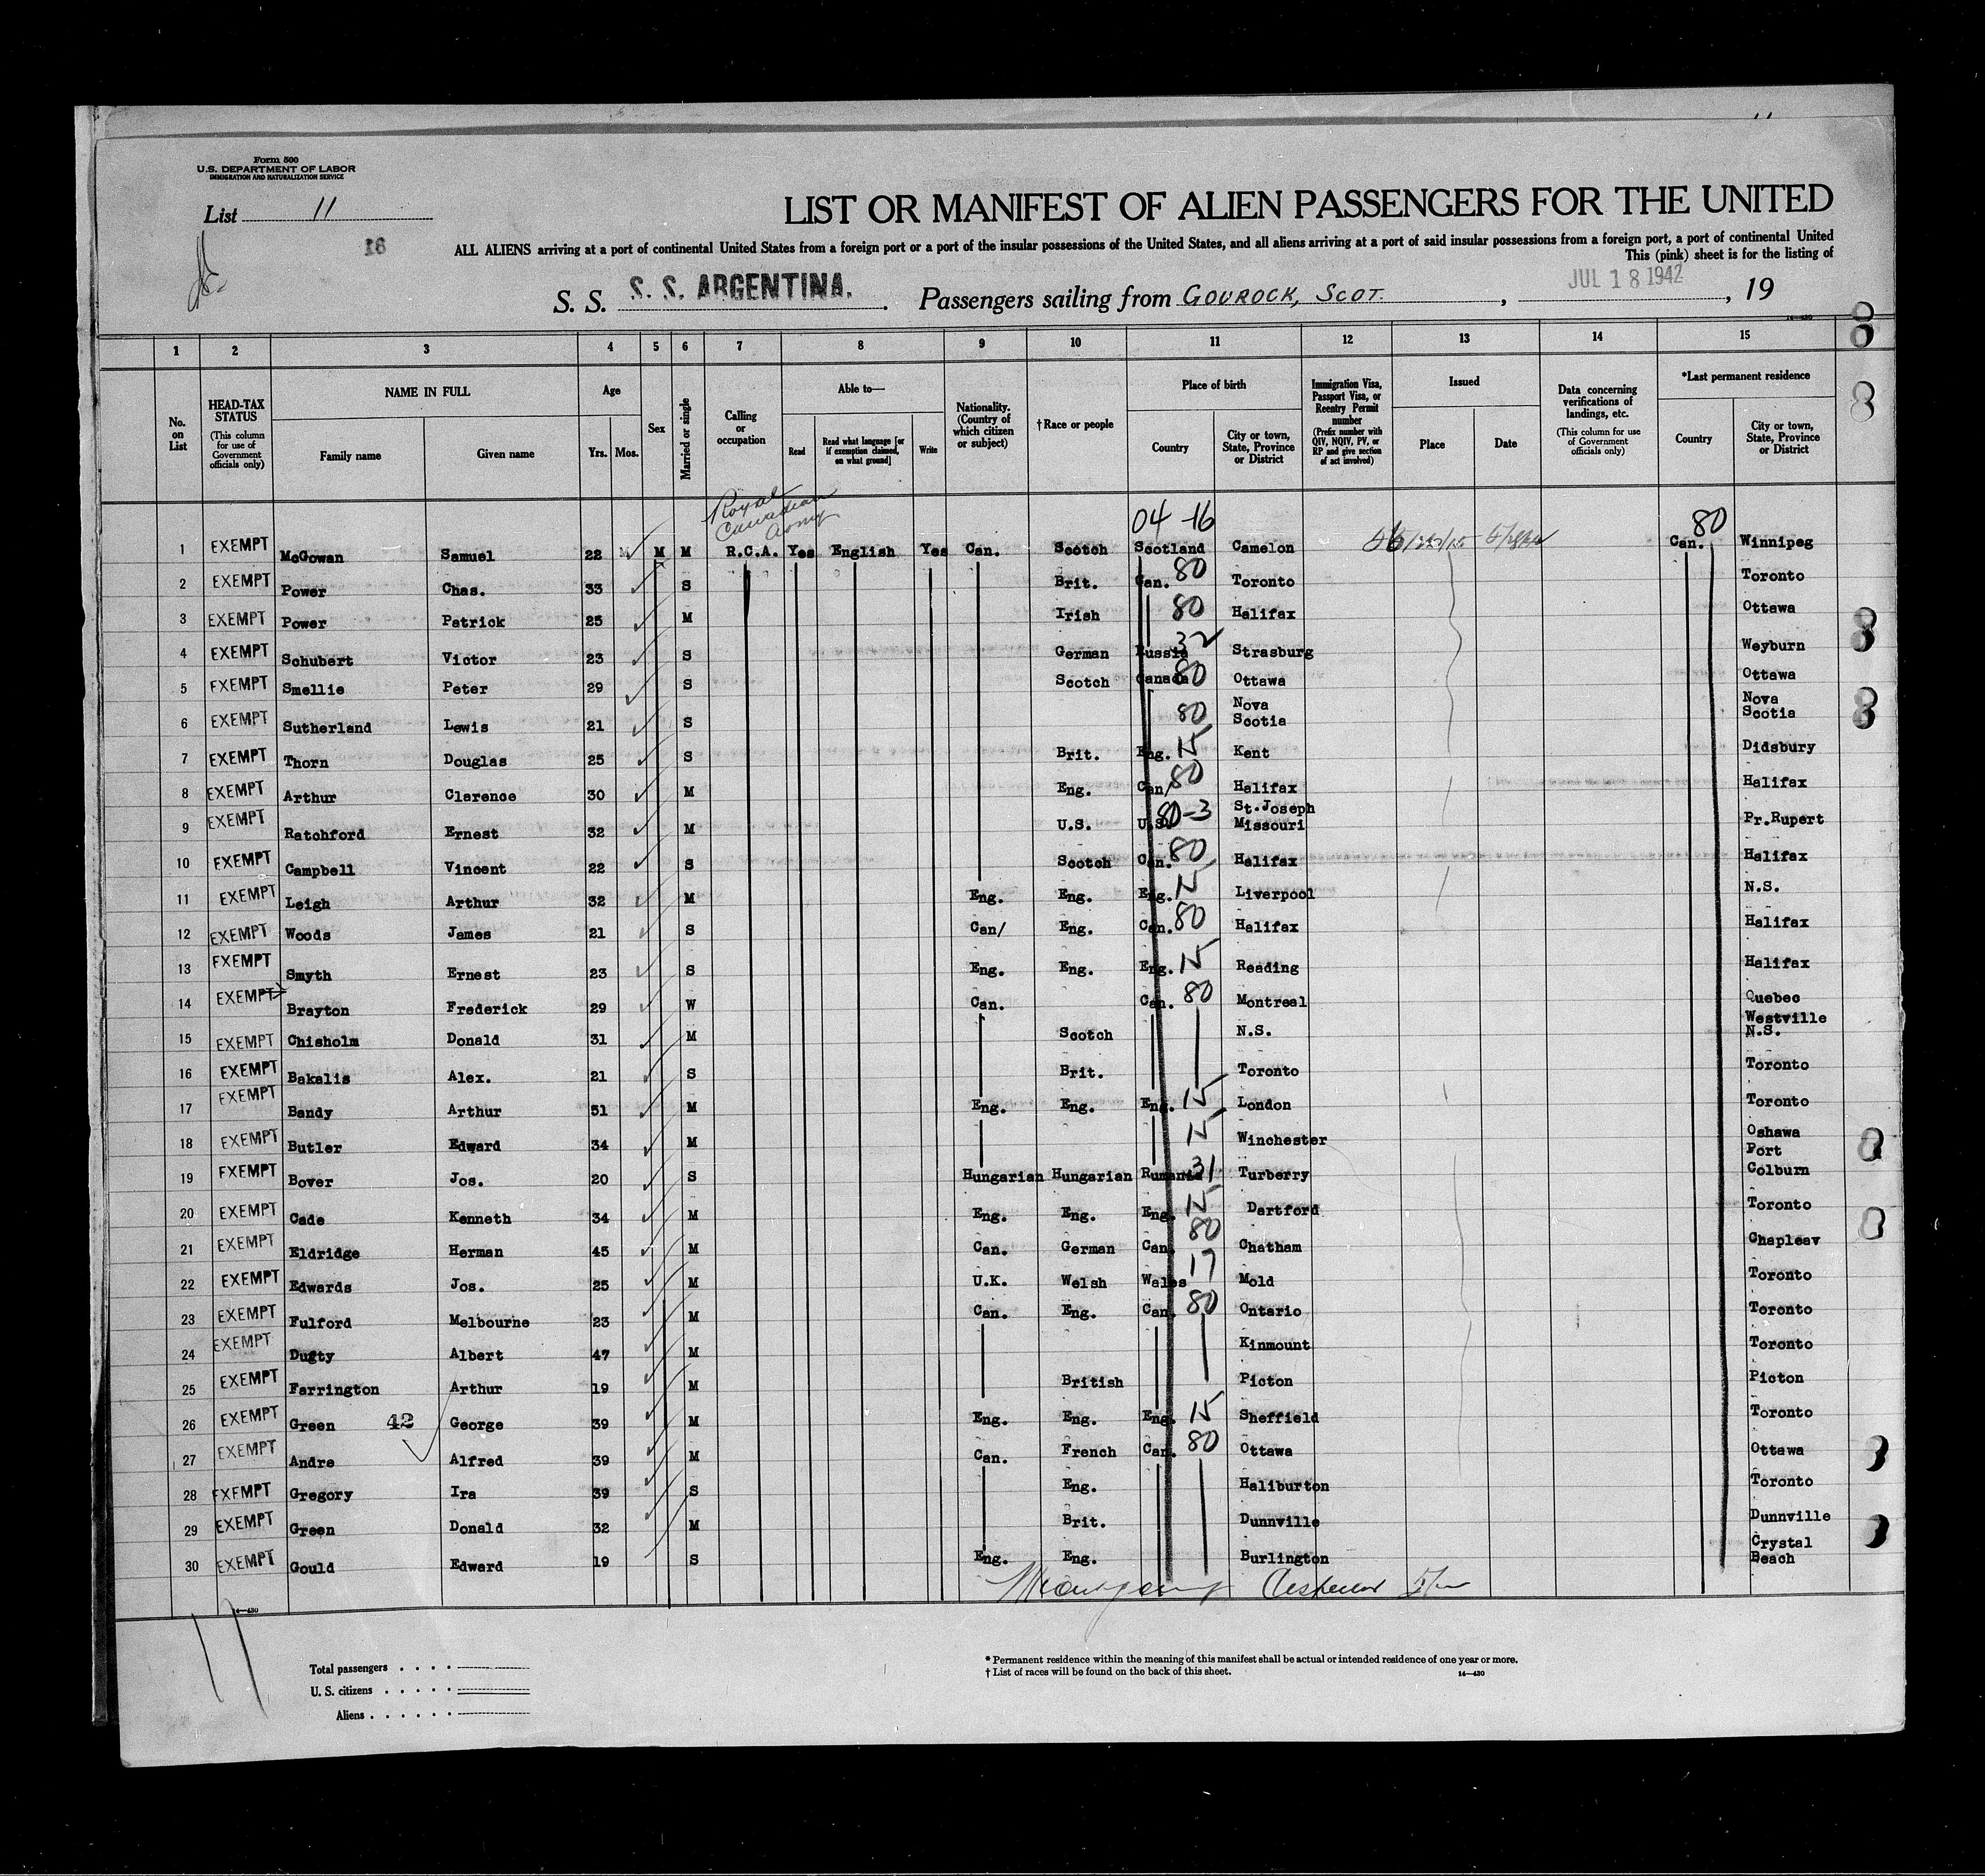 Form 500
U.S. DEPARTMENT OF LABOR
IMMIGRATION AND NATURALIZATION SERVICE
List 11
LIST OR MANIFEST OF ALIEN PASSENGERS FOR THE UNITED
16
ALL ALIENS arriving at a port of continental United States from a foreign port or a port of the insular possessions of the United States, and all aliens arriving at a port of said insular possessions from a foreign port, a port of continental United
This (pink) sheet is for the listing of
S. S. S. S. ARGENTINA. Passengers sailing from GOUROCK, SCOT. , JUL 18 1942 , 19
14—430
1 2 3 4 5 6 7 8 9 10 11 12 13 14 15
No. on List
HEAD-TAX STATUS (This column for use of Government officials only)
NAME IN FULL Family name Given name
Age Yrs. Mos.
Sex
Married or single
Calling or occupation
Able to— Read Read what language [or if exemption claimed, on what ground] Write
Nationality. (Country of which citizen or subject)
†Race or people
Place of birth Country City or town, State, Province or District
Immigration Visa, Passport Visa, or Reentry Permit number (Prefix number with QIV, NQIV, PV, or RP and give section of act involved)
Issued Place Date
Data concerning verifications of landings, etc. (This column for use of Government officials only)
*Last permanent residence Country City or town, State, Province or District
Royal Canadian Army
04 -16 80
1 EXEMPT McGowan Samuel 22 M M R.C.A. Yes English Yes Can. Scotch Scotland Camelon Can. Winnipeg
2 EXEMPT Power Chas. 33 S Brit. Can. 80 Toronto Toronto
3 EXEMPT Power Patrick 25 M Irish 80 Halifax Ottawa
4 EXEMPT Schubert Victor 23 S German Russia 32 Strasburg Weyburn
5 EXEMPT Smellie Peter 29 S Scotch Canada 80 Ottawa Ottawa
6 EXEMPT Sutherland Lewis 21 S 80 Nova Scotia Nova Scotia
7 EXEMPT Thorn Douglas 25 S Brit. Eng. 15 Kent Didsbury
8 EXEMPT Arthur Clarence 30 M Eng. Can/ 80 Halifax Halifax
9 EXEMPT Ratchford Ernest 32 M U.S. U.S. 80-3 St.Joseph Missouri Pr.Rupert
10 EXEMPT Campbell Vincent 22 S Scotch Can. 80 Halifax Halifax
11 EXEMPT Leigh Arthur 32 M Eng. Eng. Eng. 15 Liverpool N.S.
12 EXEMPT Woods James 21 S Can/ Eng. Can. 80 Halifax Halifax
13 EXEMPT Smyth Ernest 23 S Eng. Eng. Eng. 15 Reading Halifax
14 EXEMPT Brayton Frederick 29 W Can. Can. 80 Montreal Quebec
15 EXEMPT Chisholm Donald 31 M Scotch N.S. Westville N.S.
16 EXEMPT Bakalis Alex. 21 S Brit. Toronto Toronto
17 EXEMPT Bandy Arthur 51 M Eng. Eng. Eng. 15 London Toronto
18 EXEMPT Butler Edward 34 M 15 Winchester Oshawa
19 EXEMPT Bover Jos. 20 S Hungarian Hungarian Rumania 31 Turberry Port Colburn
20 EXEMPT Cade Kenneth 34 M Eng. Eng. Eng. 15 Dartford Toronto
21 EXEMPT Eldridge Herman 45 M Can. German Can. 80 Chatham Chapleav
22 EXEMPT Edwards Jos. 25 M U.K. Welsh Wales 17 Mold Toronto
23 EXEMPT Fulford Melbourne 23 M Can. Eng. Can. 80 Ontario Toronto
24 EXEMPT Dugty Albert 47 M Kinmount Toronto
25 EXEMPT Farrington Arthur 19 M British Picton Picton
26 EXEMPT Green 42 George 39 M Eng. Eng. Eng. 15 Sheffield Toronto
27 EXEMPT Andre Alfred 39 M Can. French Can. 80 Ottawa Ottawa
28 EXEMPT Gregory Ira 39 S Eng. Haliburton Toronto
29 EXEMPT Green Donald 32 M Brit. Dunnville Dunnville
30 EXEMPT Gould Edward 19 S Eng. Eng. Burlington Crystal Beach
14—430
11
Total passengers
U. S. citizens
Aliens
* Permanent residence within the meaning of this manifest shall be actual or intended residence of one year or more.
† List of races will be found on the back of this sheet. 14—430